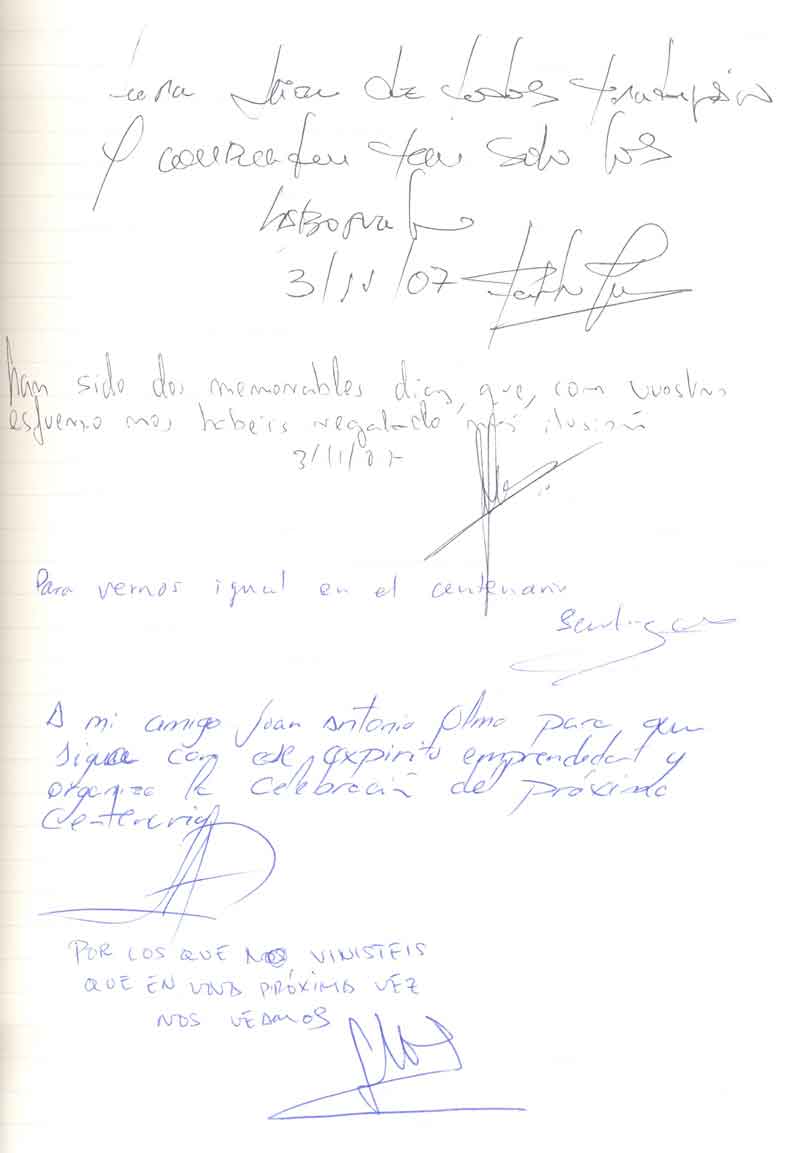 de todos
Y tan solo los
3/11/07
han sido dos memorables dias, que, com vuestro
esfuerzo nos habeis regalado más ilusión
3/11/07
Para vernos igual en el centenario
A mi amigo Juan Antonio Olmo para que
sigue con ese expirito emprendedor y
organiza la celebración de próximo
Centenario
POR LOS QUE NO VINISTEIS
QUE EN UNA PRÓXIMA VEZ
NOS VEAMOS